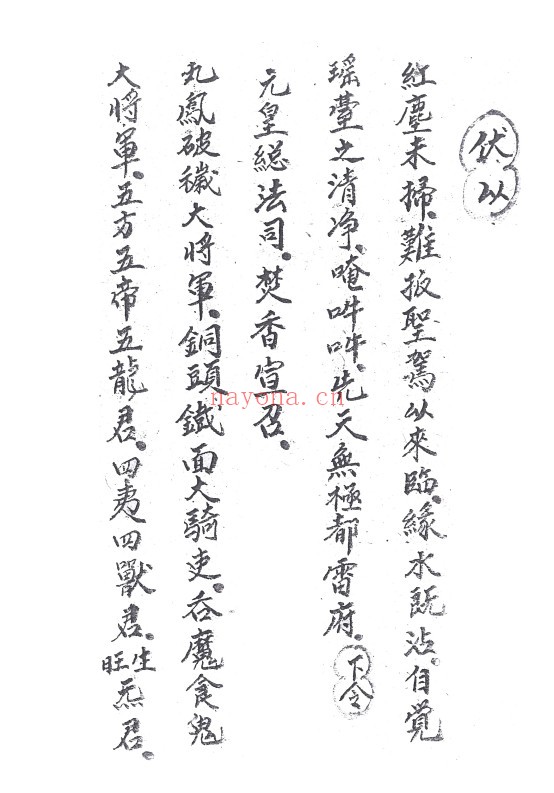 伏以
紅塵未掃。難扳聖駕以來臨。緣水既沾。自覺
瑶臺之清净。唵吽吽。先天無極都雷府。下令
元皇總法司。焚香宣召。
丸鳳破穢大將軍。銅頭鐵面大騎吏。吞魔食鬼
大將軍。五方五帝五龍君。四夷四獸君。生旺炁君。
nayona.cn